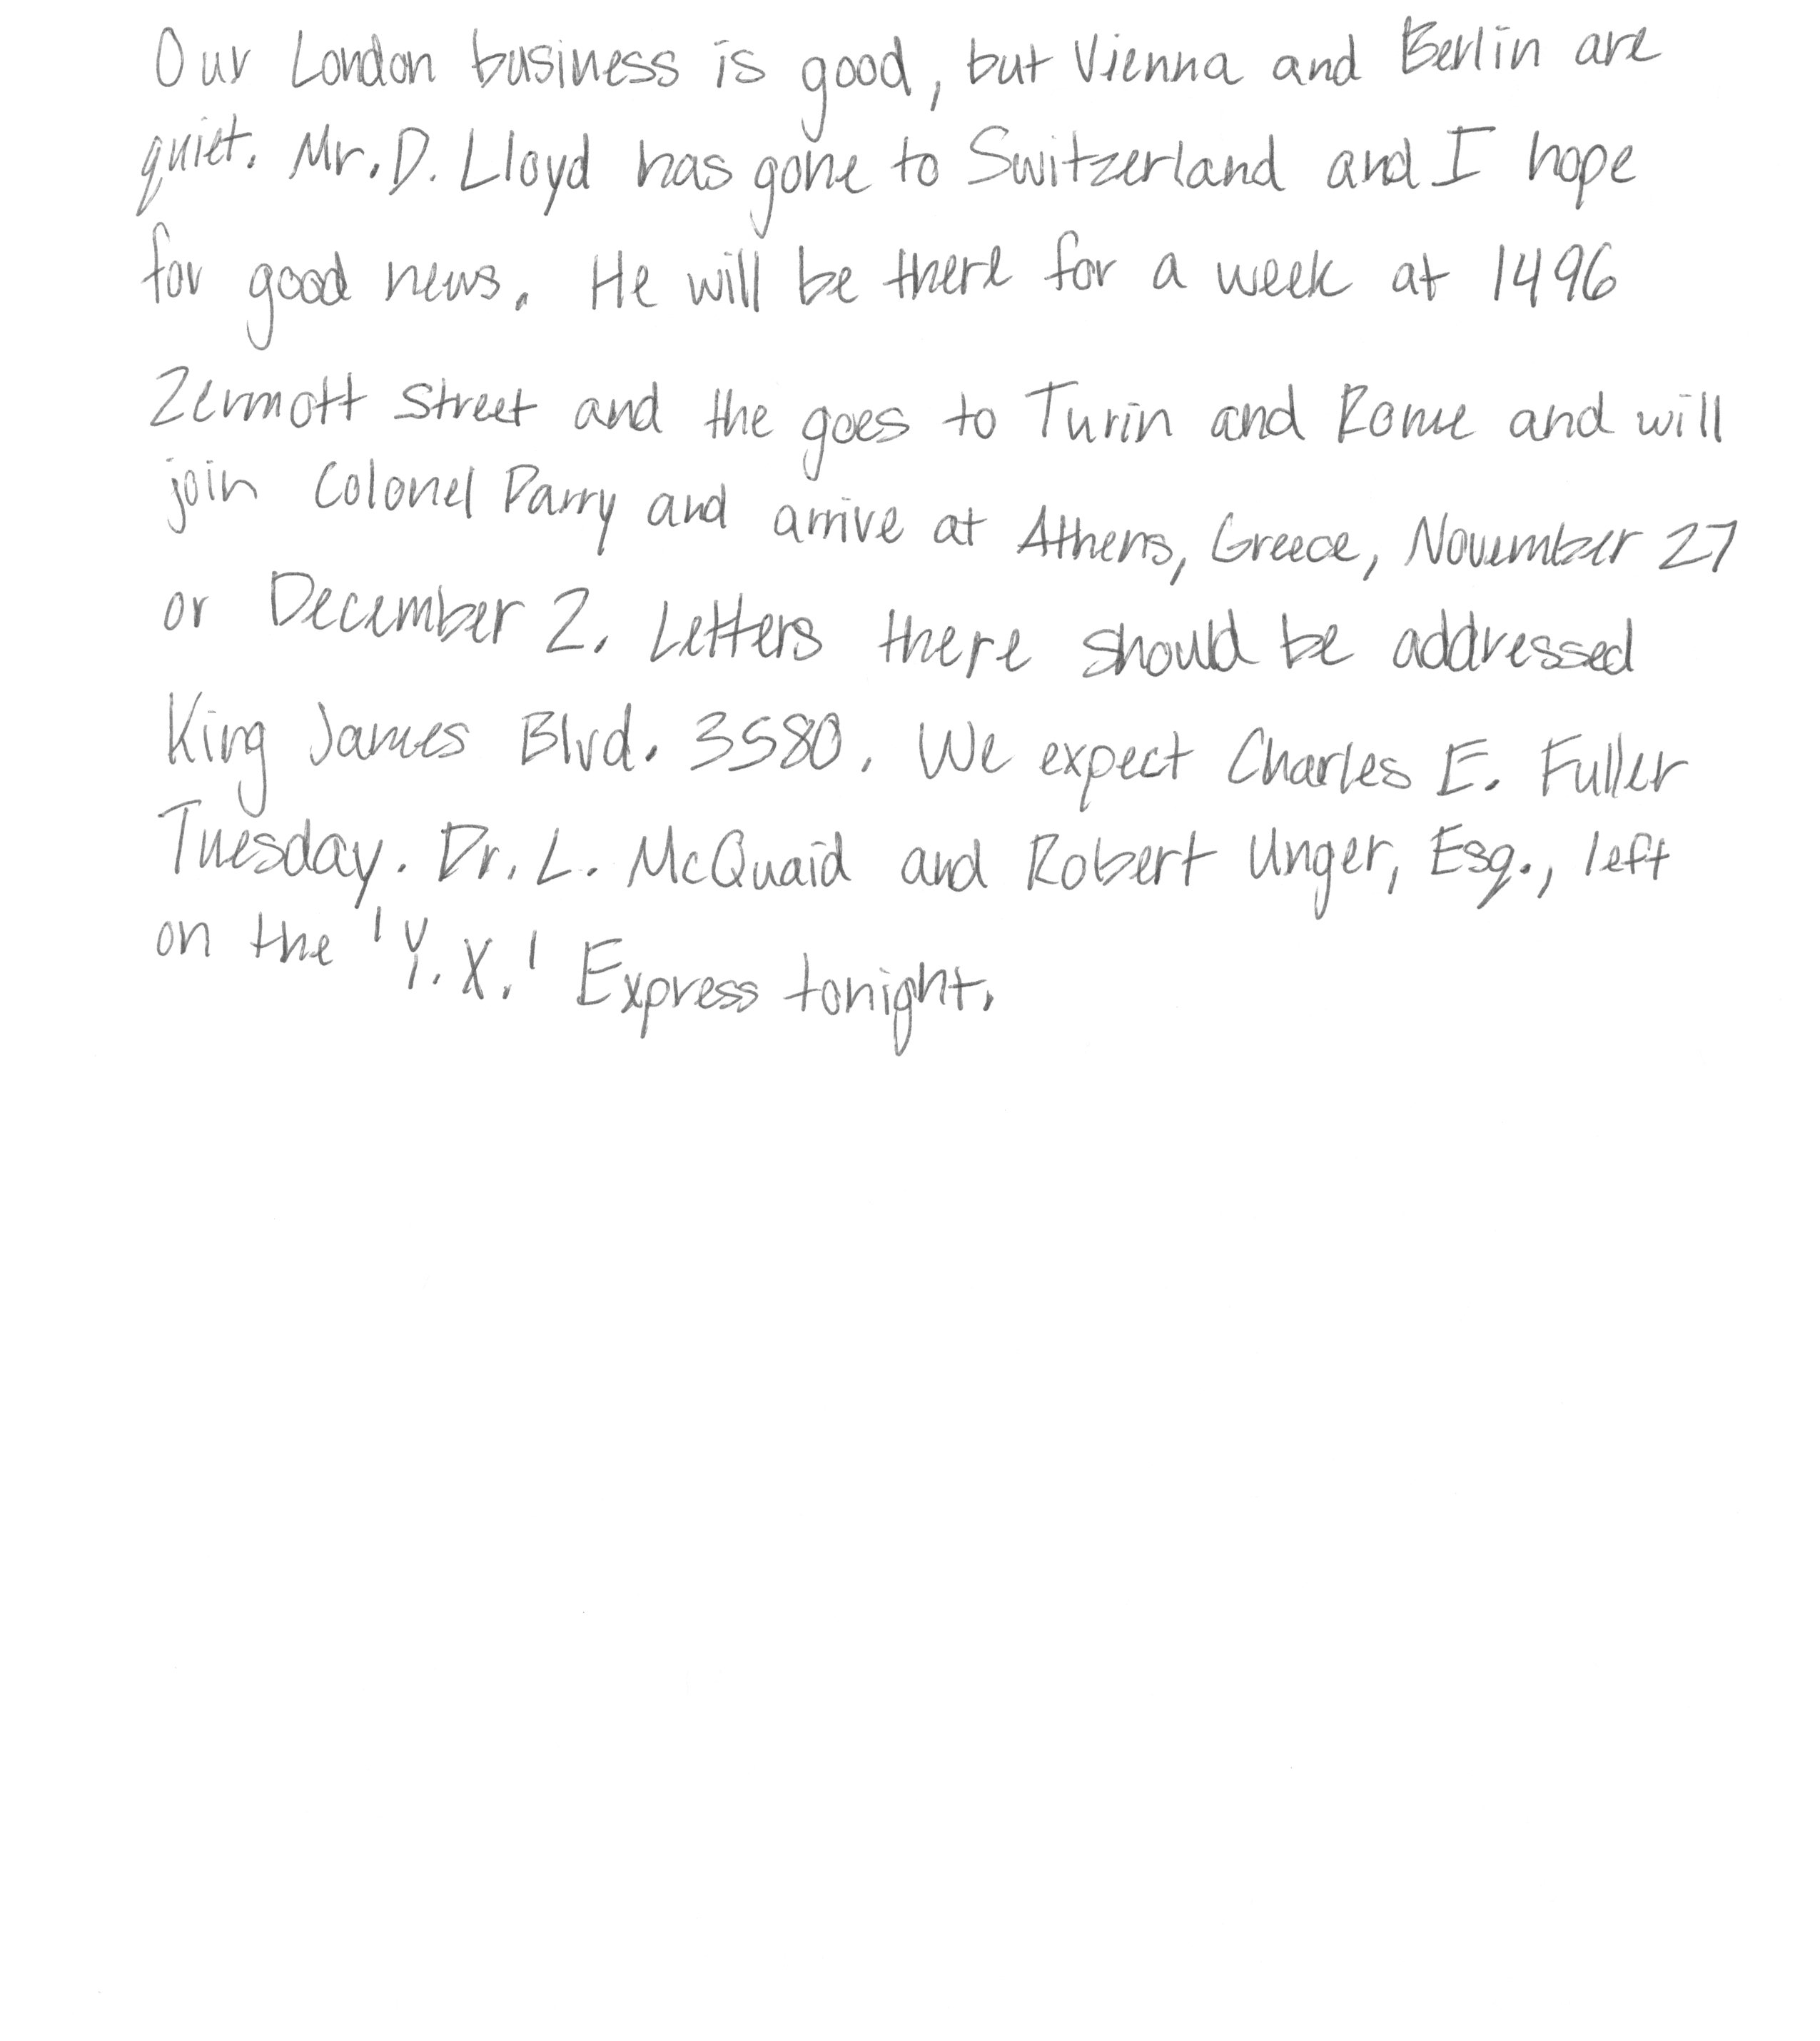 Our London business is good, but Vienna and Berlin are
quiet. Mr. D. Lloyd has gone to Switzerland and I hope
for good news. He will be there for a week at 1496
Zermott Street and the goes to Turin and Rome and will
join Colonel Parry and arrive at Athens, Greece, November 27
or December 2. Letters there should be addressed
King James Blvd. 3580. We expect Charles E. Fuller
Tuesday. Dr. L. McQuaid and Robert Unger, Esq., left
on the 'Y.X.' Express tonight.